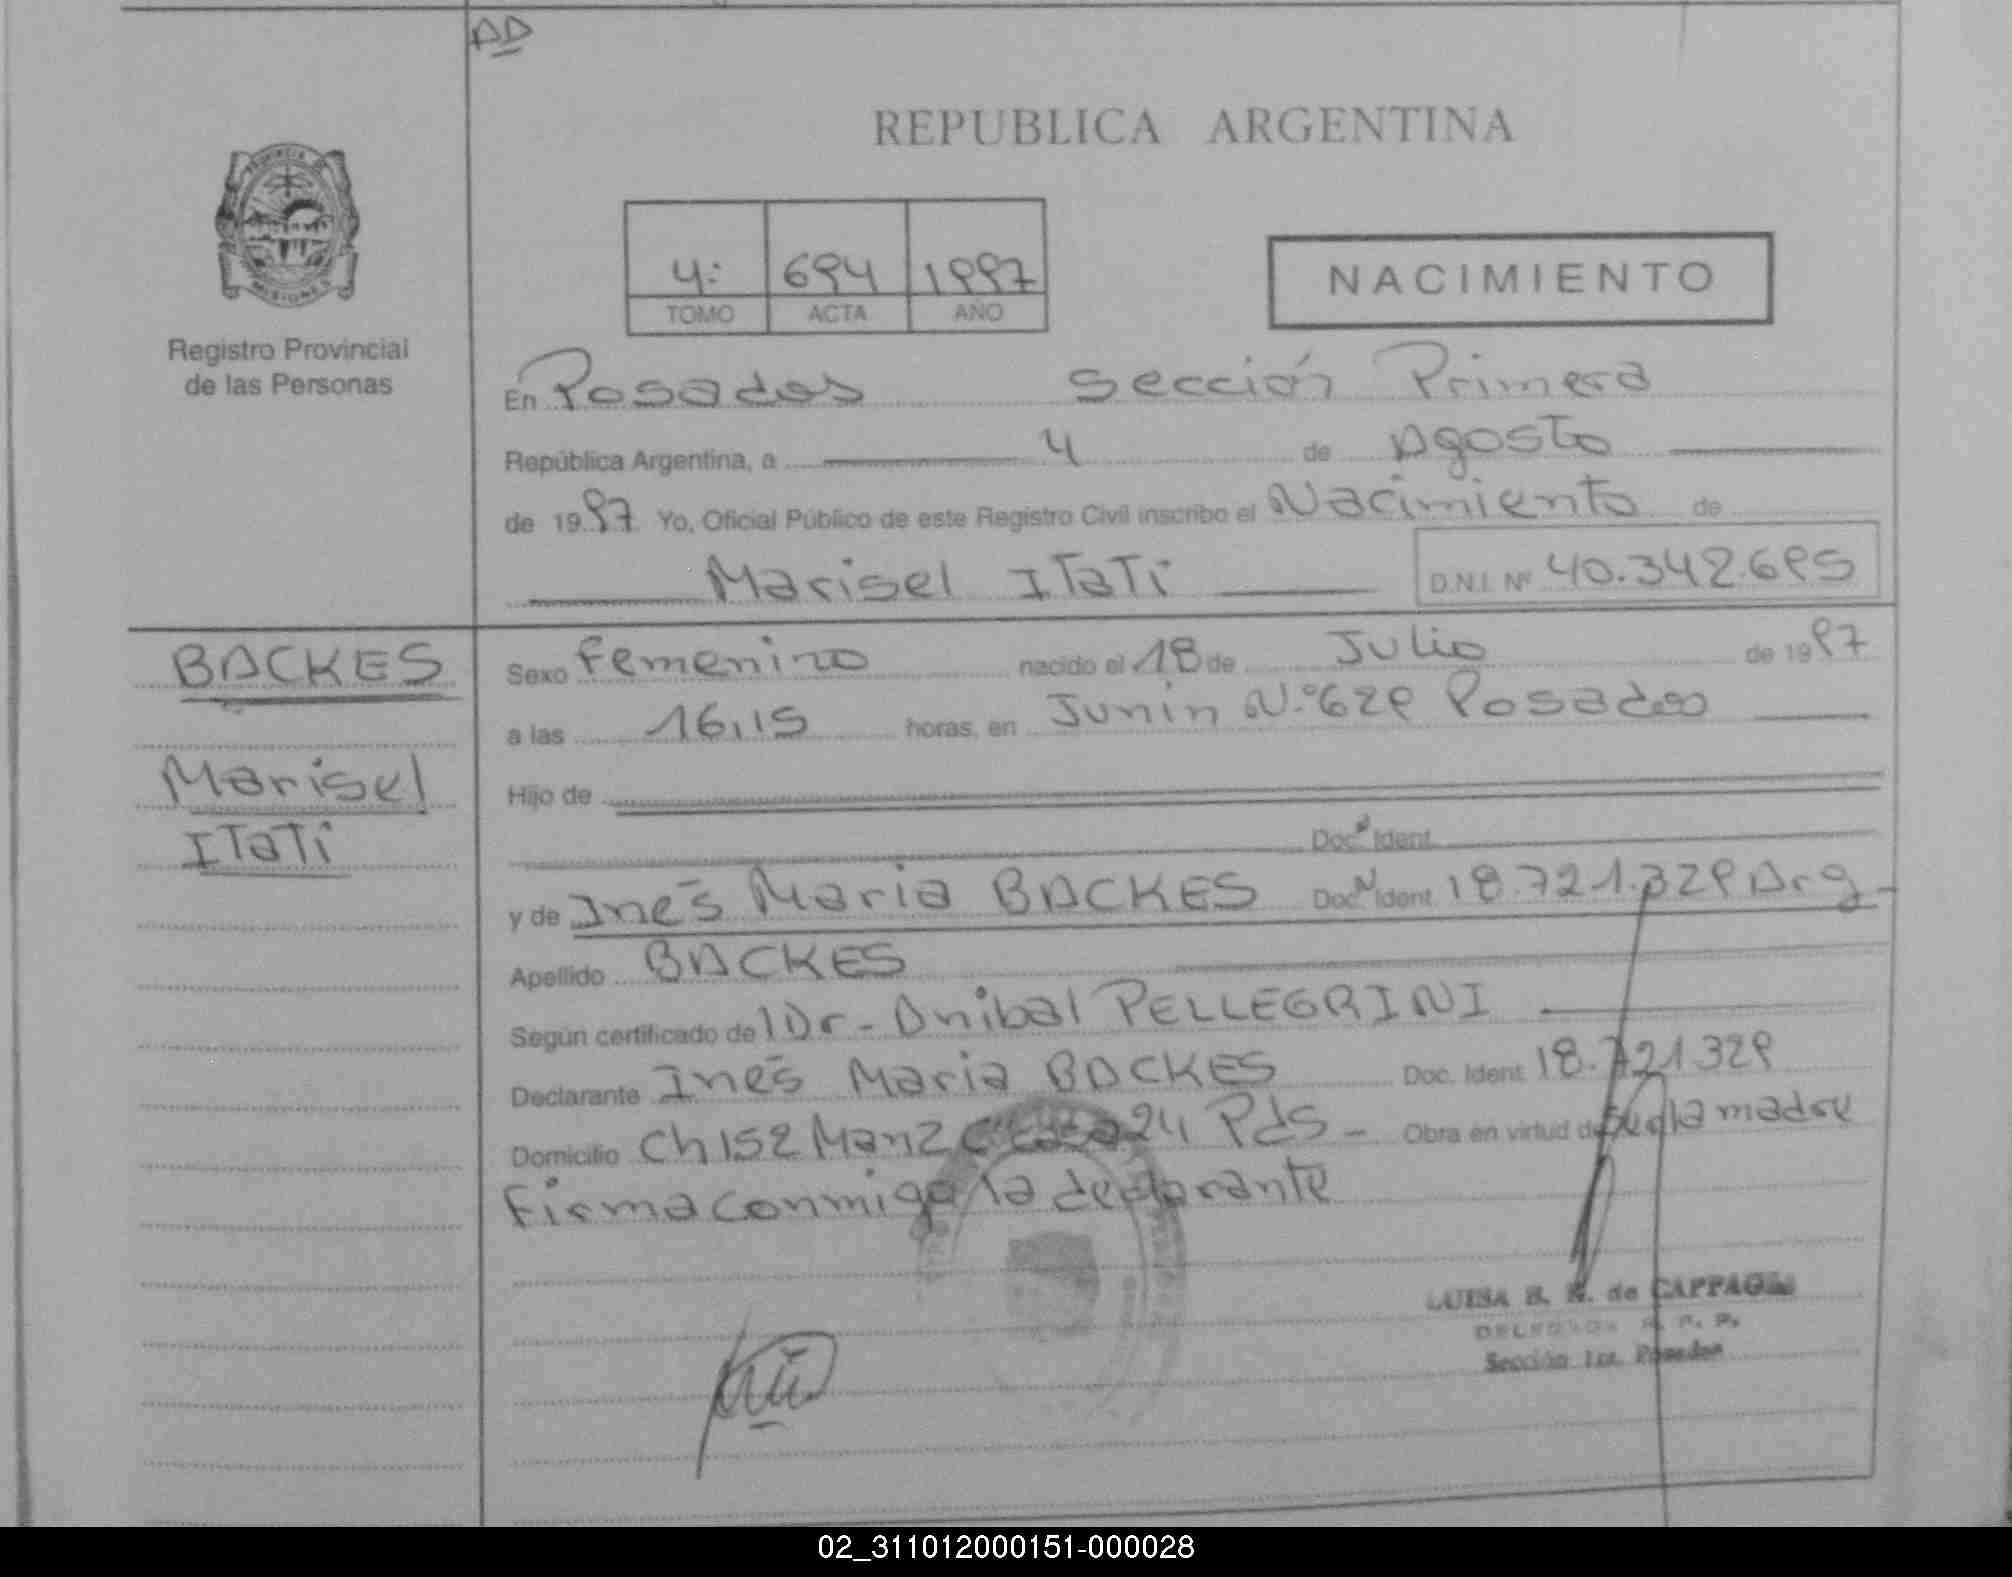 AD
REPUBLICA ARGENTINA
PROVINCIA DE
MISIONES
Registro Provincial
de las Personas
4: 694 1997
TOMO ACTA AÑO
NACIMIENTO
En Posadas Sección Primera
República Argentina, a 4 de Agosto
de 1997 Yo, Oficial Público de este Registro Civil inscribo el Nacimiento de
Marisel ITaTi D.N.I. Nº 40.342.695
BACKES
Marisel
ITaTi
Sexo Femenino nacido el 18 de Julio de 1997
a las 16,15 horas, en Junin N.º 629 Posadas
Hijo de
Doc. Ident.
y de Inés Maria BACKES Doc. N Ident. 18.721.329 Arg
Apellido BACKES
Según certificado del Dr. Anibal PELLEGRINI
Declarante Inés Maria BACKES Doc. Ident. 18.721329
Domicilio Ch 152 Manz C 24 Pds - Obra en virtud de la madre
Firma conmigo la declarante
LUISA B. de
DELEGADA R. P. P.
Sección 1ra. Posadas
02_311012000151-000028